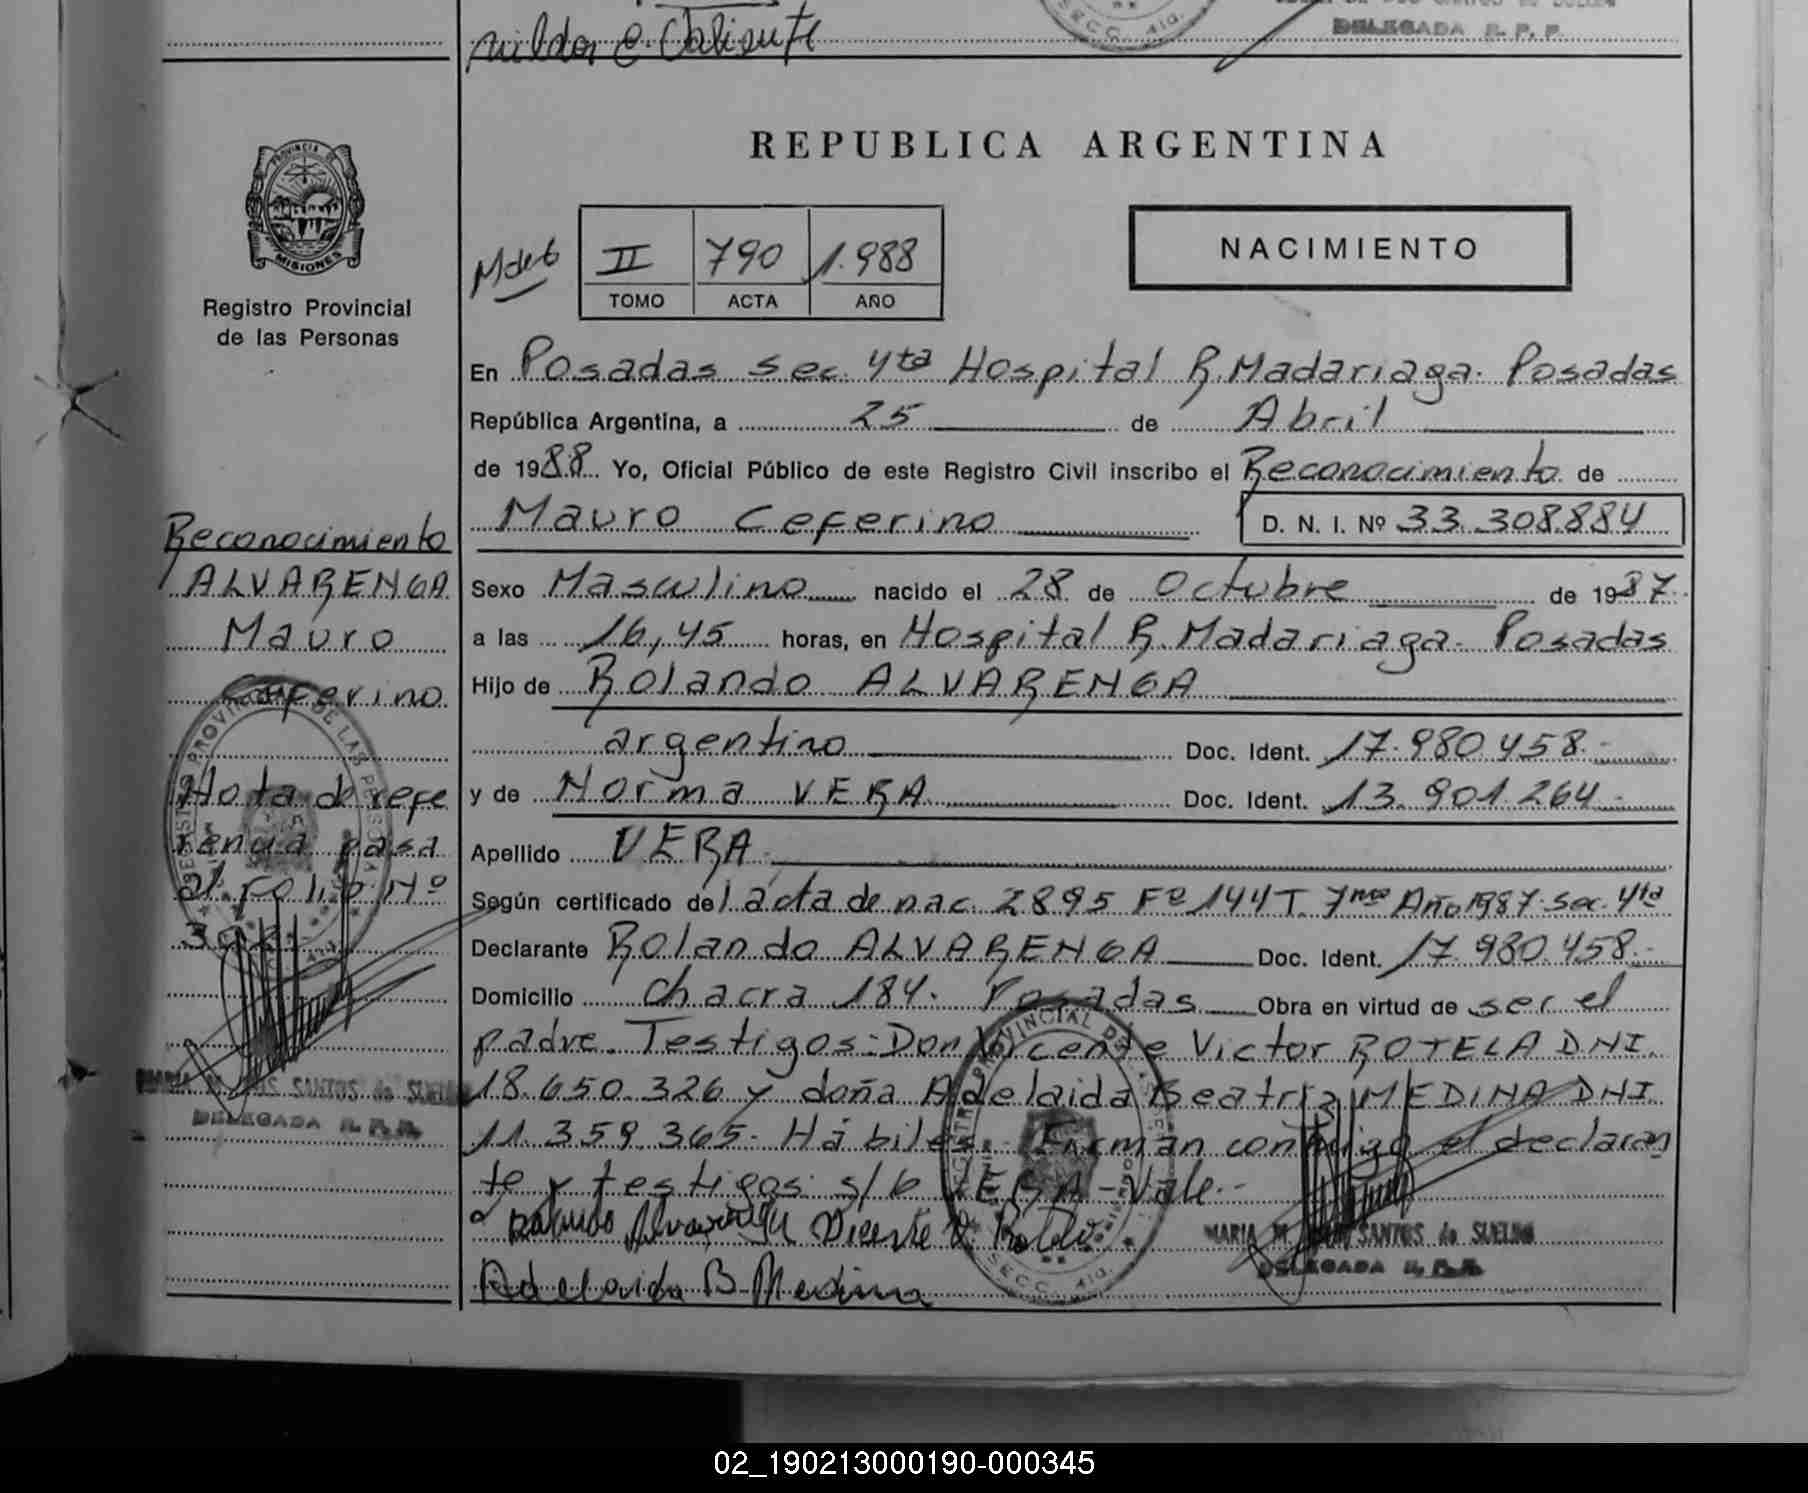 DELEGADA R. P. P.
SECC. 4ta.
REPUBLICA ARGENTINA
PROVINCIA DE
MISIONES
Registro Provincial
de las Personas
II 790 1.988
TOMO ACTA AÑO
NACIMIENTO
En Posadas sec. 4ta Hospital R. Madariaga. Posadas
República Argentina, a 25 de Abril
de 1988 Yo, Oficial Público de este Registro Civil inscribo el Reconocimiento de
Mauro Ceferino D. N. I. Nº 33.308884
Reconocimiento
ALVARENGA
Mauro
Ceferino
Nota de refe
rencia pasa
al folio Nº
Sexo Masculino nacido el 28 de Octubre de 1987.
a las 16,45 horas, en Hospital R. Madariaga. Posadas
Hijo de Rolando ALVARENGA
argentino Doc. Ident. 17.980.458.-
y de Norma VERA Doc. Ident. 13.901.264.-
Apellido VERA.
Según certificado del acta de nac. 2895 Fº 144 T. 7mo Año 1987. Sec. 4ta
Declarante Rolando ALVARENGA Doc. Ident. 17.980.458.-
Domicilio Chacra 184. Posadas Obra en virtud de ser el
padre. Testigos: Don Vicente Victor ROTELA DNI.
18.650.326 y doña Adelaida Beatriz MEDINA DNI.
11.359.365. Hábiles. Firman conmigo el declaran
te y testigos. s/b VERA - Vale.-
Rolando Alvarenga Vicente V. Rotela
Adelaida B. Medina
MARIA M. SANTOS de SUELDO
DELEGADA R. P. P.
MARIA M. SANTOS de SUELDO
DELEGADA R. P. P.
REGISTRO PROVINCIAL DE LAS PERSONAS
SECC. 4ta.
02_190213000190-000345